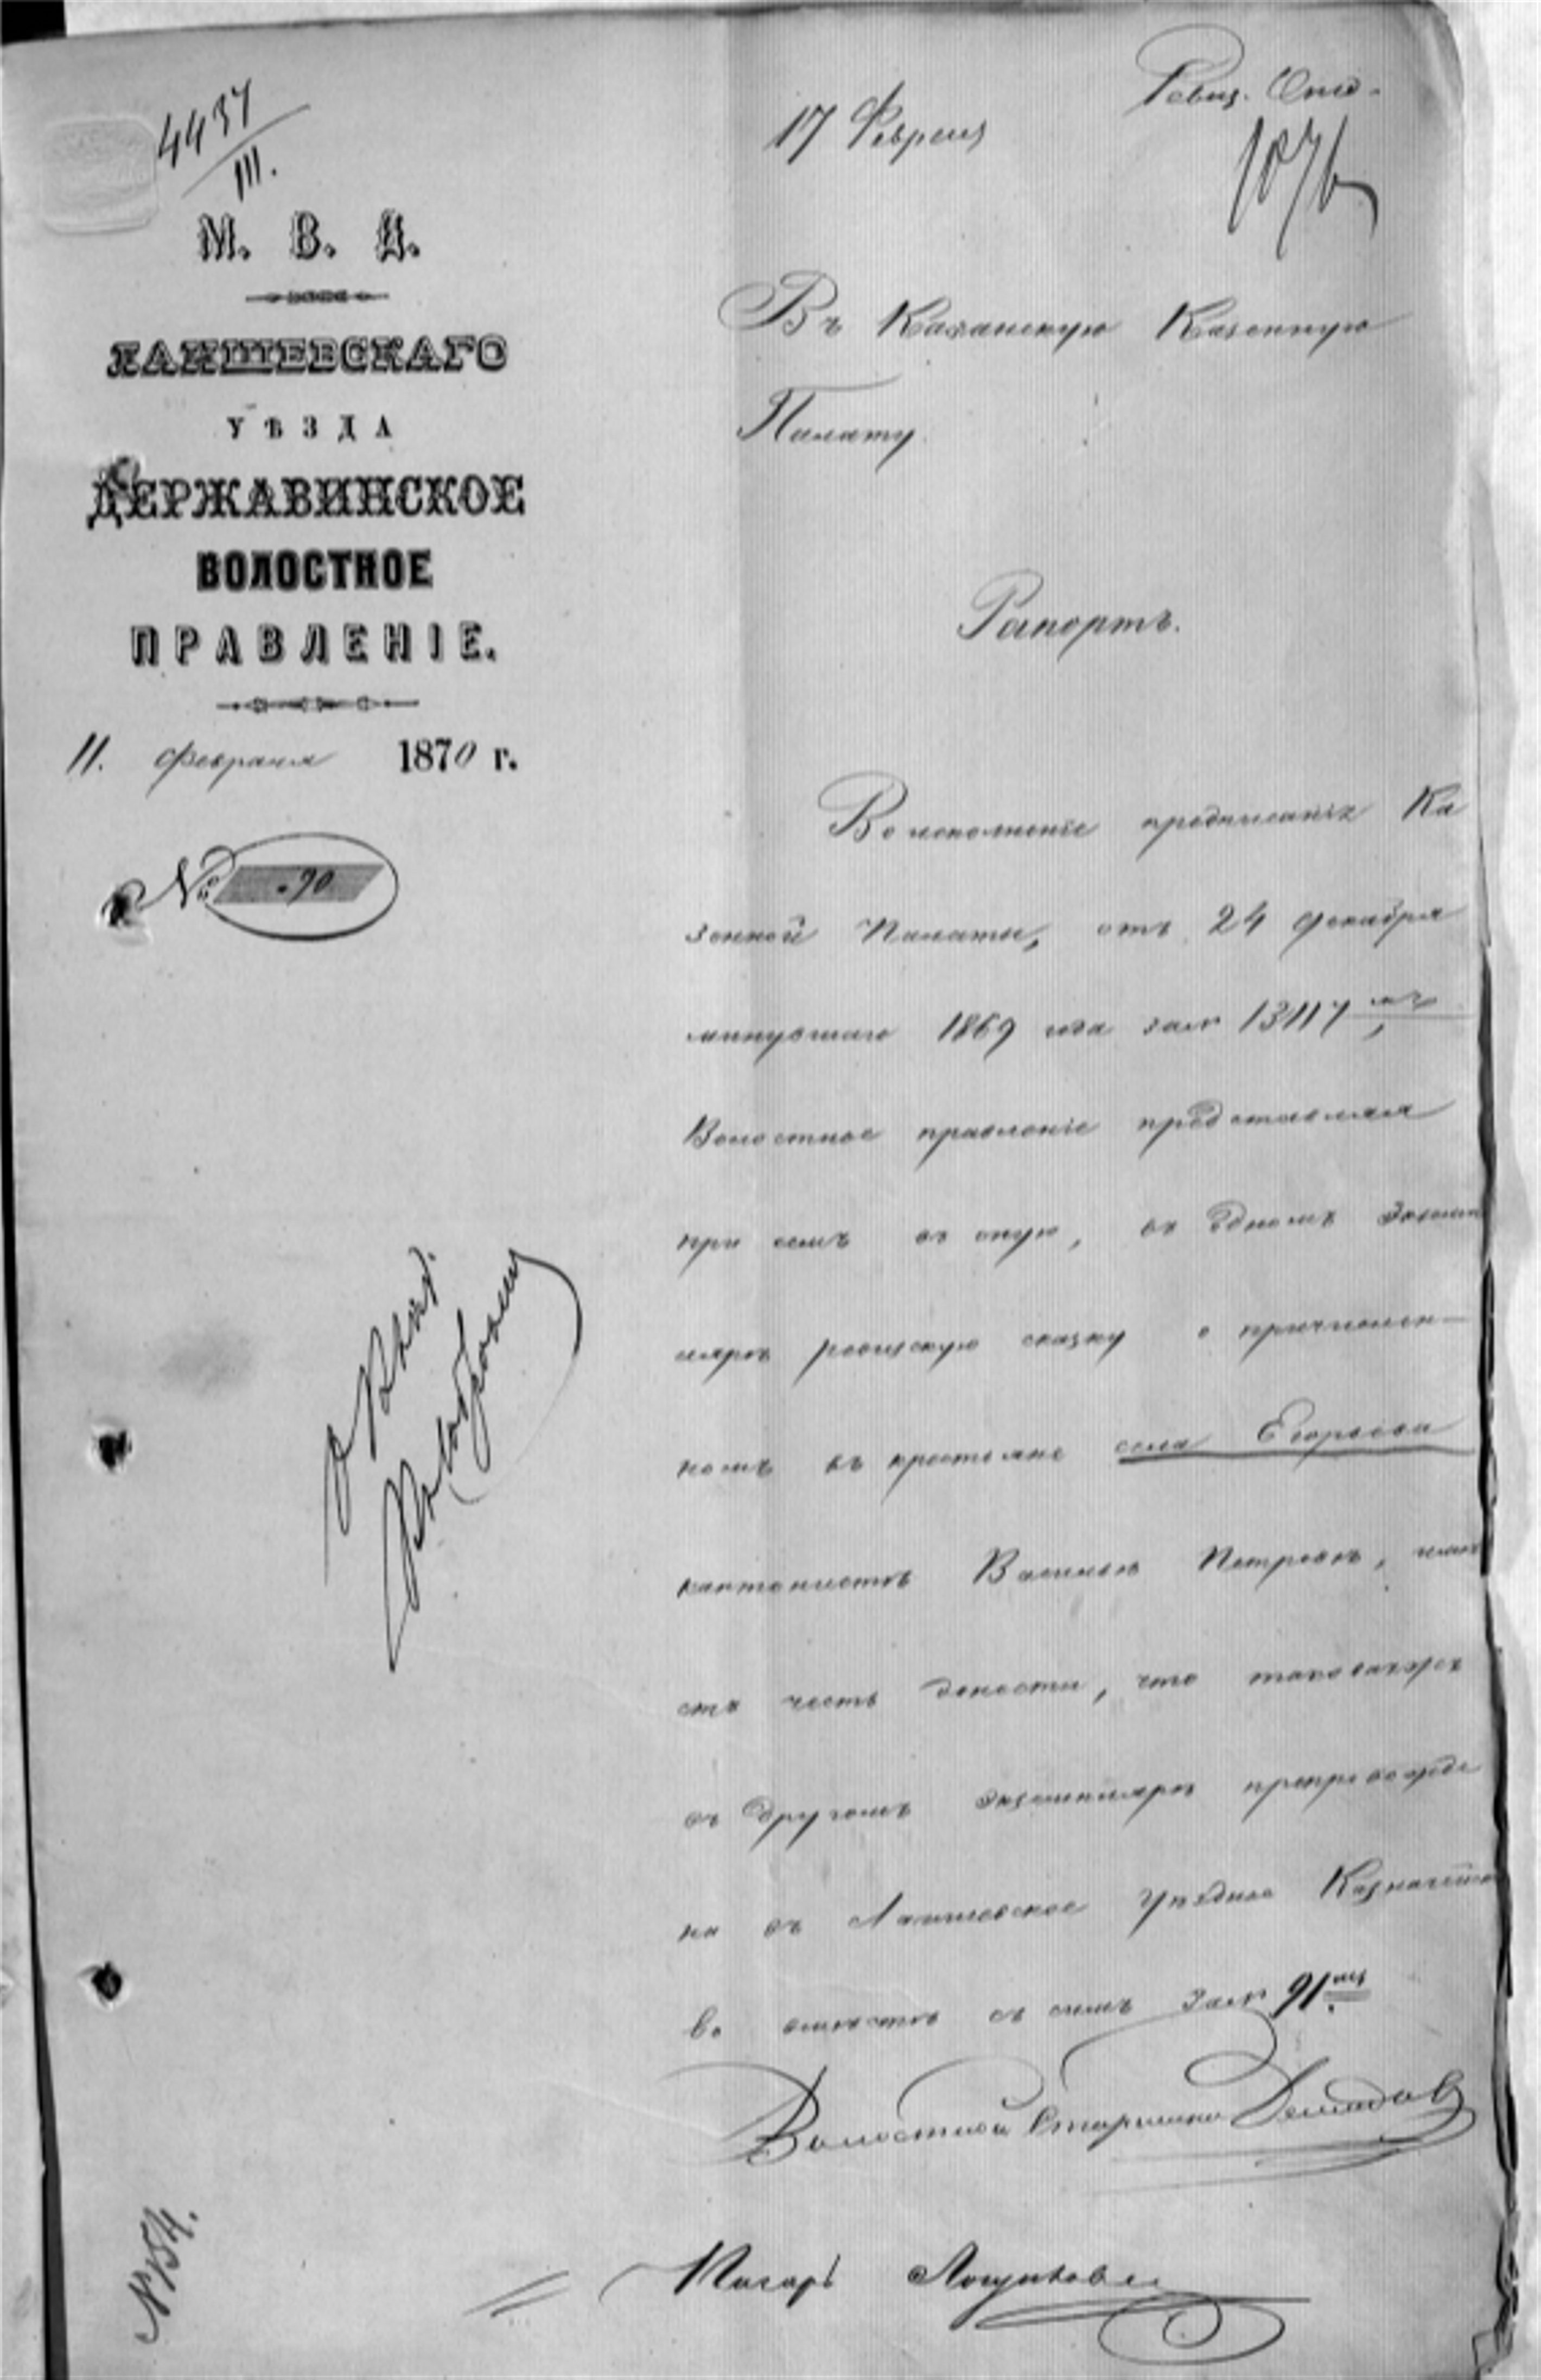 4437
III.
М. В. Д.
ЛАИШЕВСКАГО
УѢЗДА
ДЕРЖАВИНСКОЕ
ВОЛОСТНОЕ
ПРАВЛЕНІЕ.
11. февраля 1870 г.
№ 90
17 Февраля
Ревиз. Отд.
1076
Въ Казанскую Казенную
Палату
Рапортъ.
Во исполненіе предписанія Ка
зенной Палаты, отъ 24 декабря
минувшаго 1869 года за № 13117 мъ,
Волостное правленіе представляя
при семъ въ оную, въ одномъ экземп
лярѣ ревизскую сказку о причислен-
номъ въ крестьяне села Егорьева
кантонистѣ Васильѣ Петровѣ, имѣ
етъ честь донести, что таковая же
въ другомъ экземплярѣ препровожде
на въ Лаишевское Уѣздное Казначейст
во вмѣстѣ съ симъ за № 91мъ
Волостной Старшина Демидов
Писарь
№ 154.